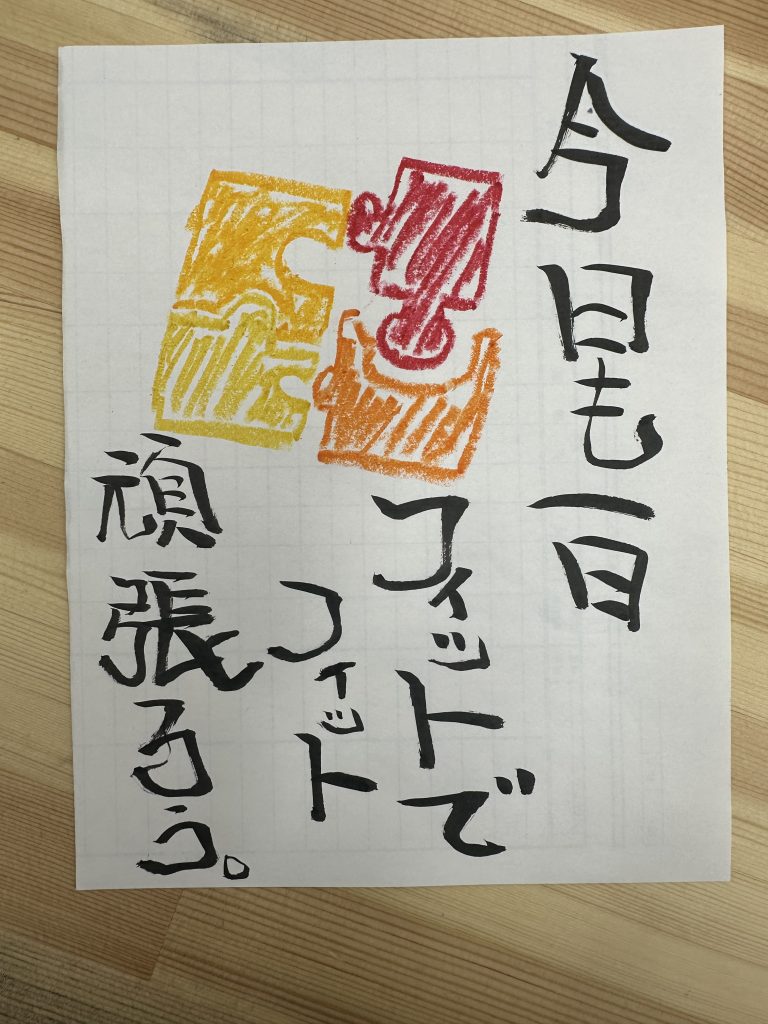 今日も一日
フィットで
フィット
頑張ろう。